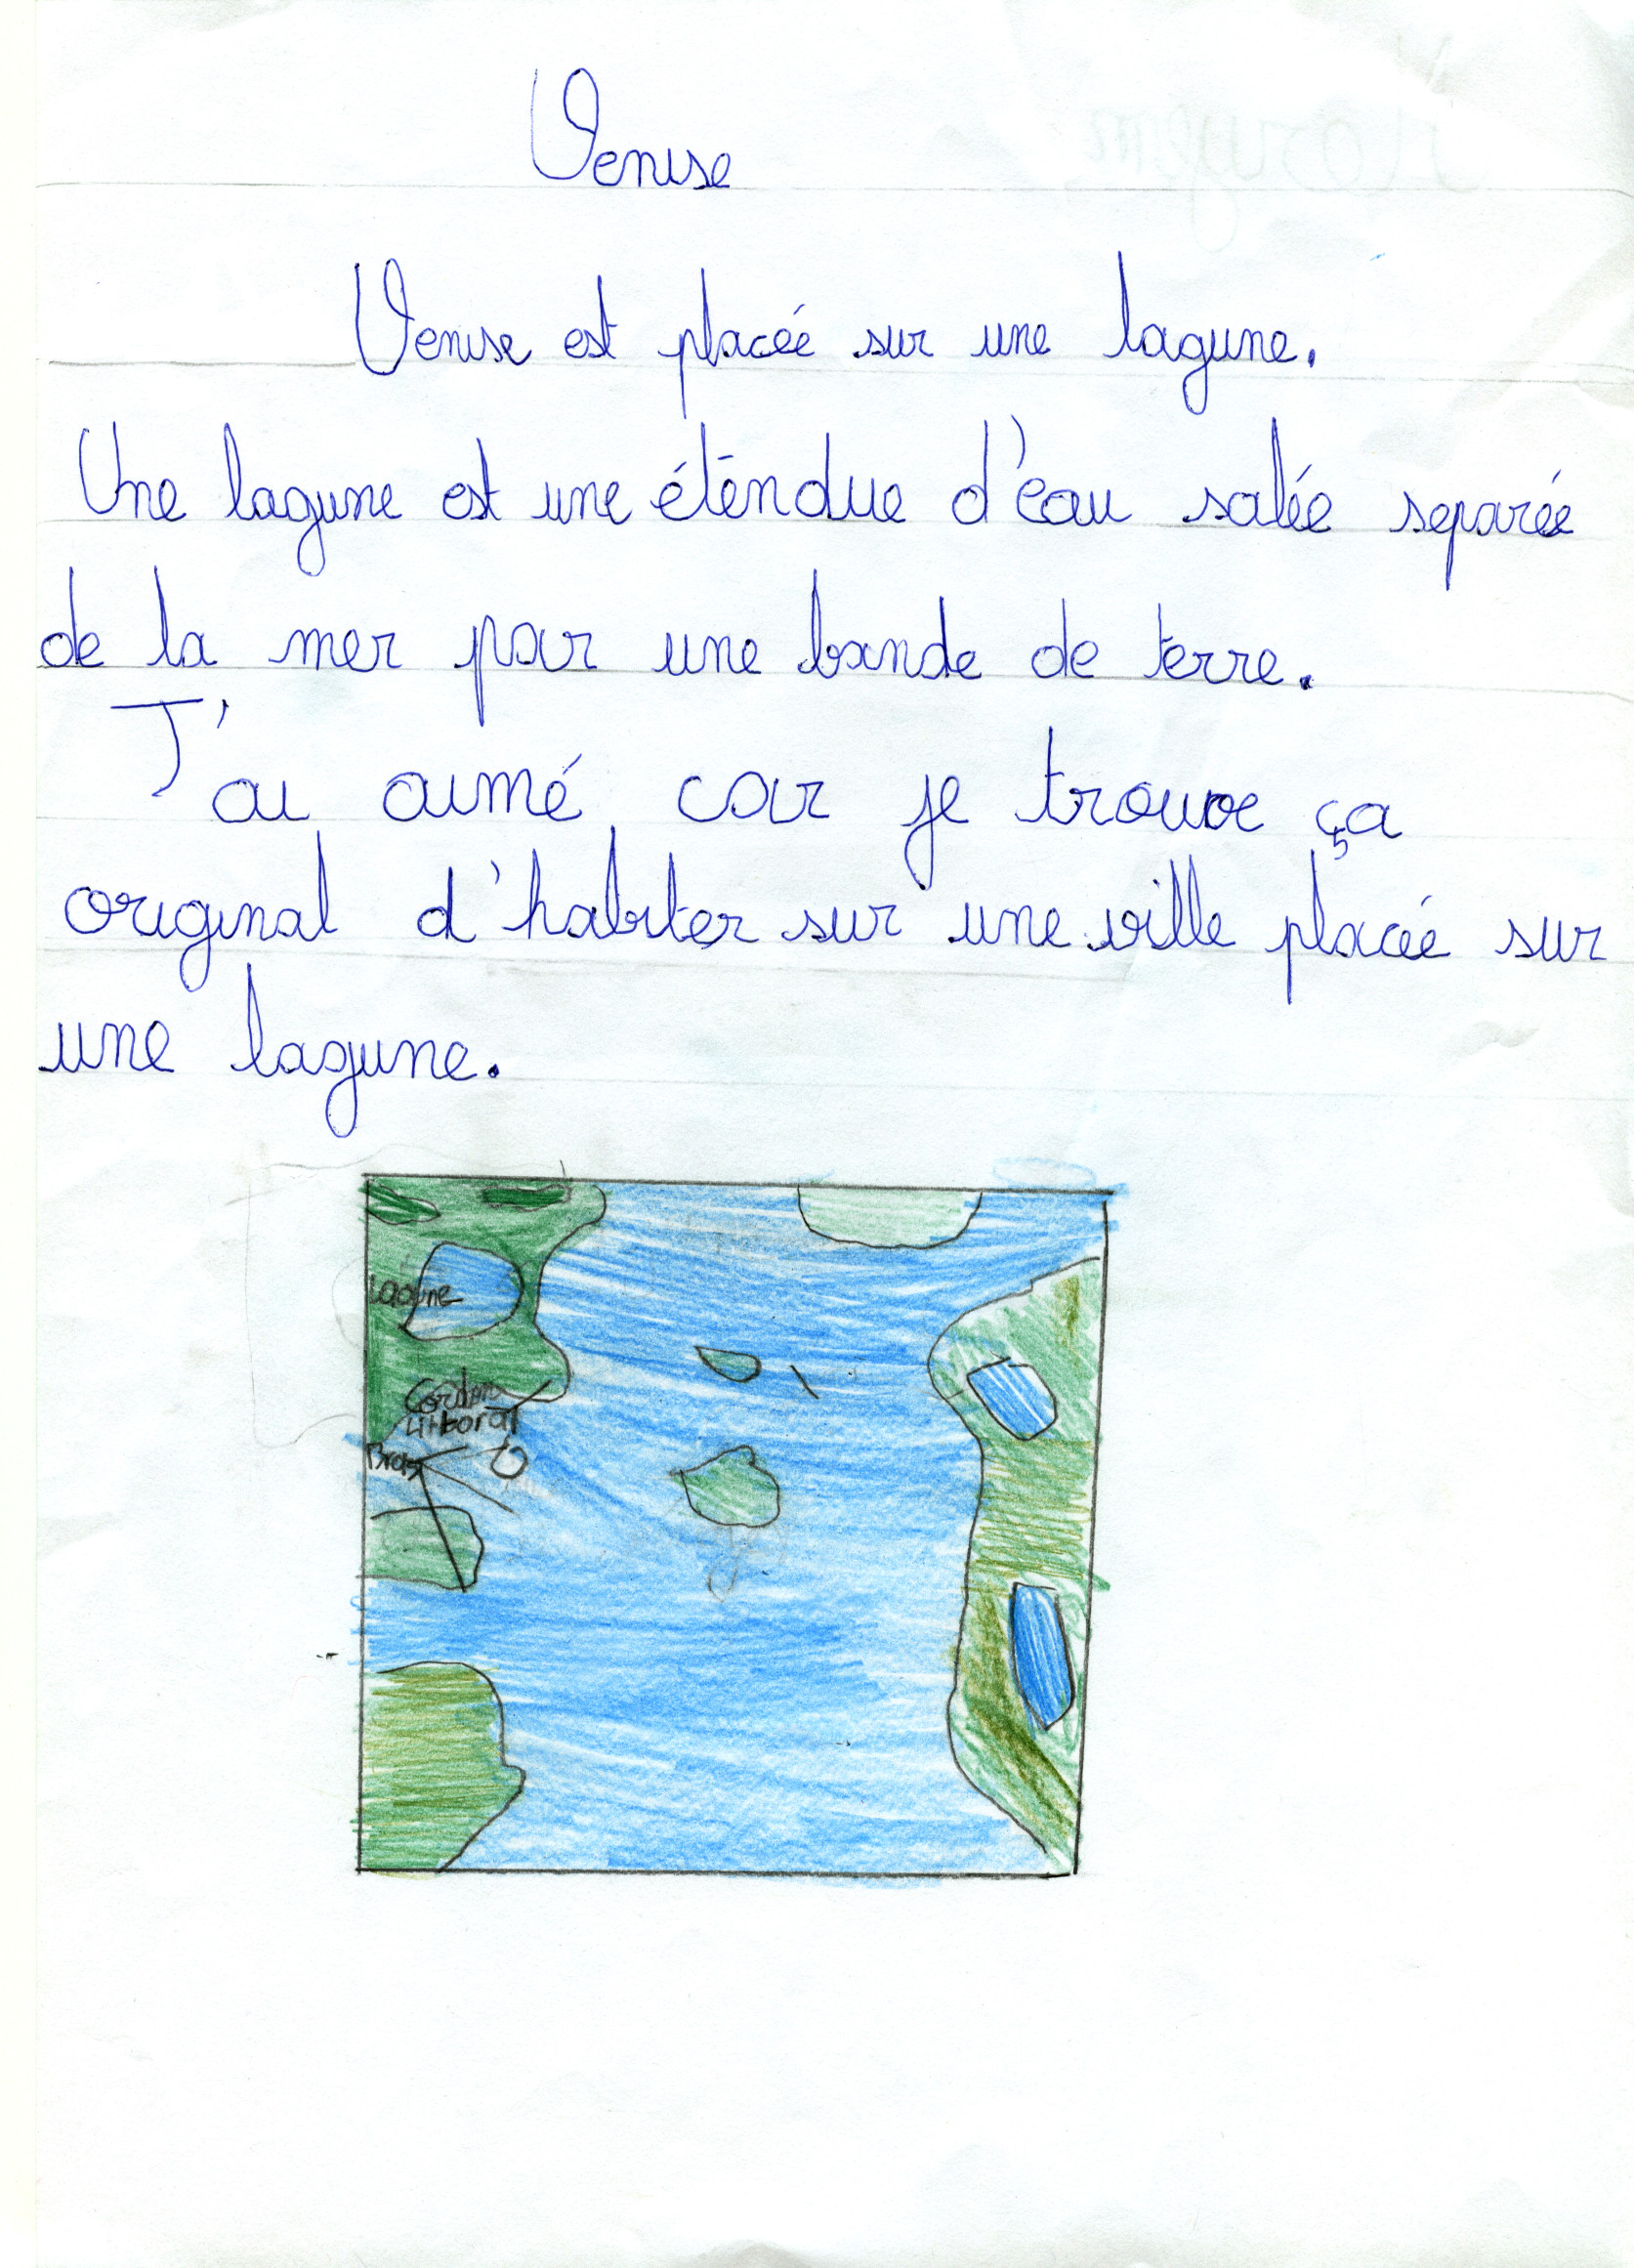 Venise
Venise est placée sur une lagune.
Une lagune est une étendue d'eau salée separée
de la mer par une bande de terre.
J'ai aimé car je trouve ça
original d'habiter sur une ville placée sur
une lagune.
Lagune
Cordon
Littoral
Bras